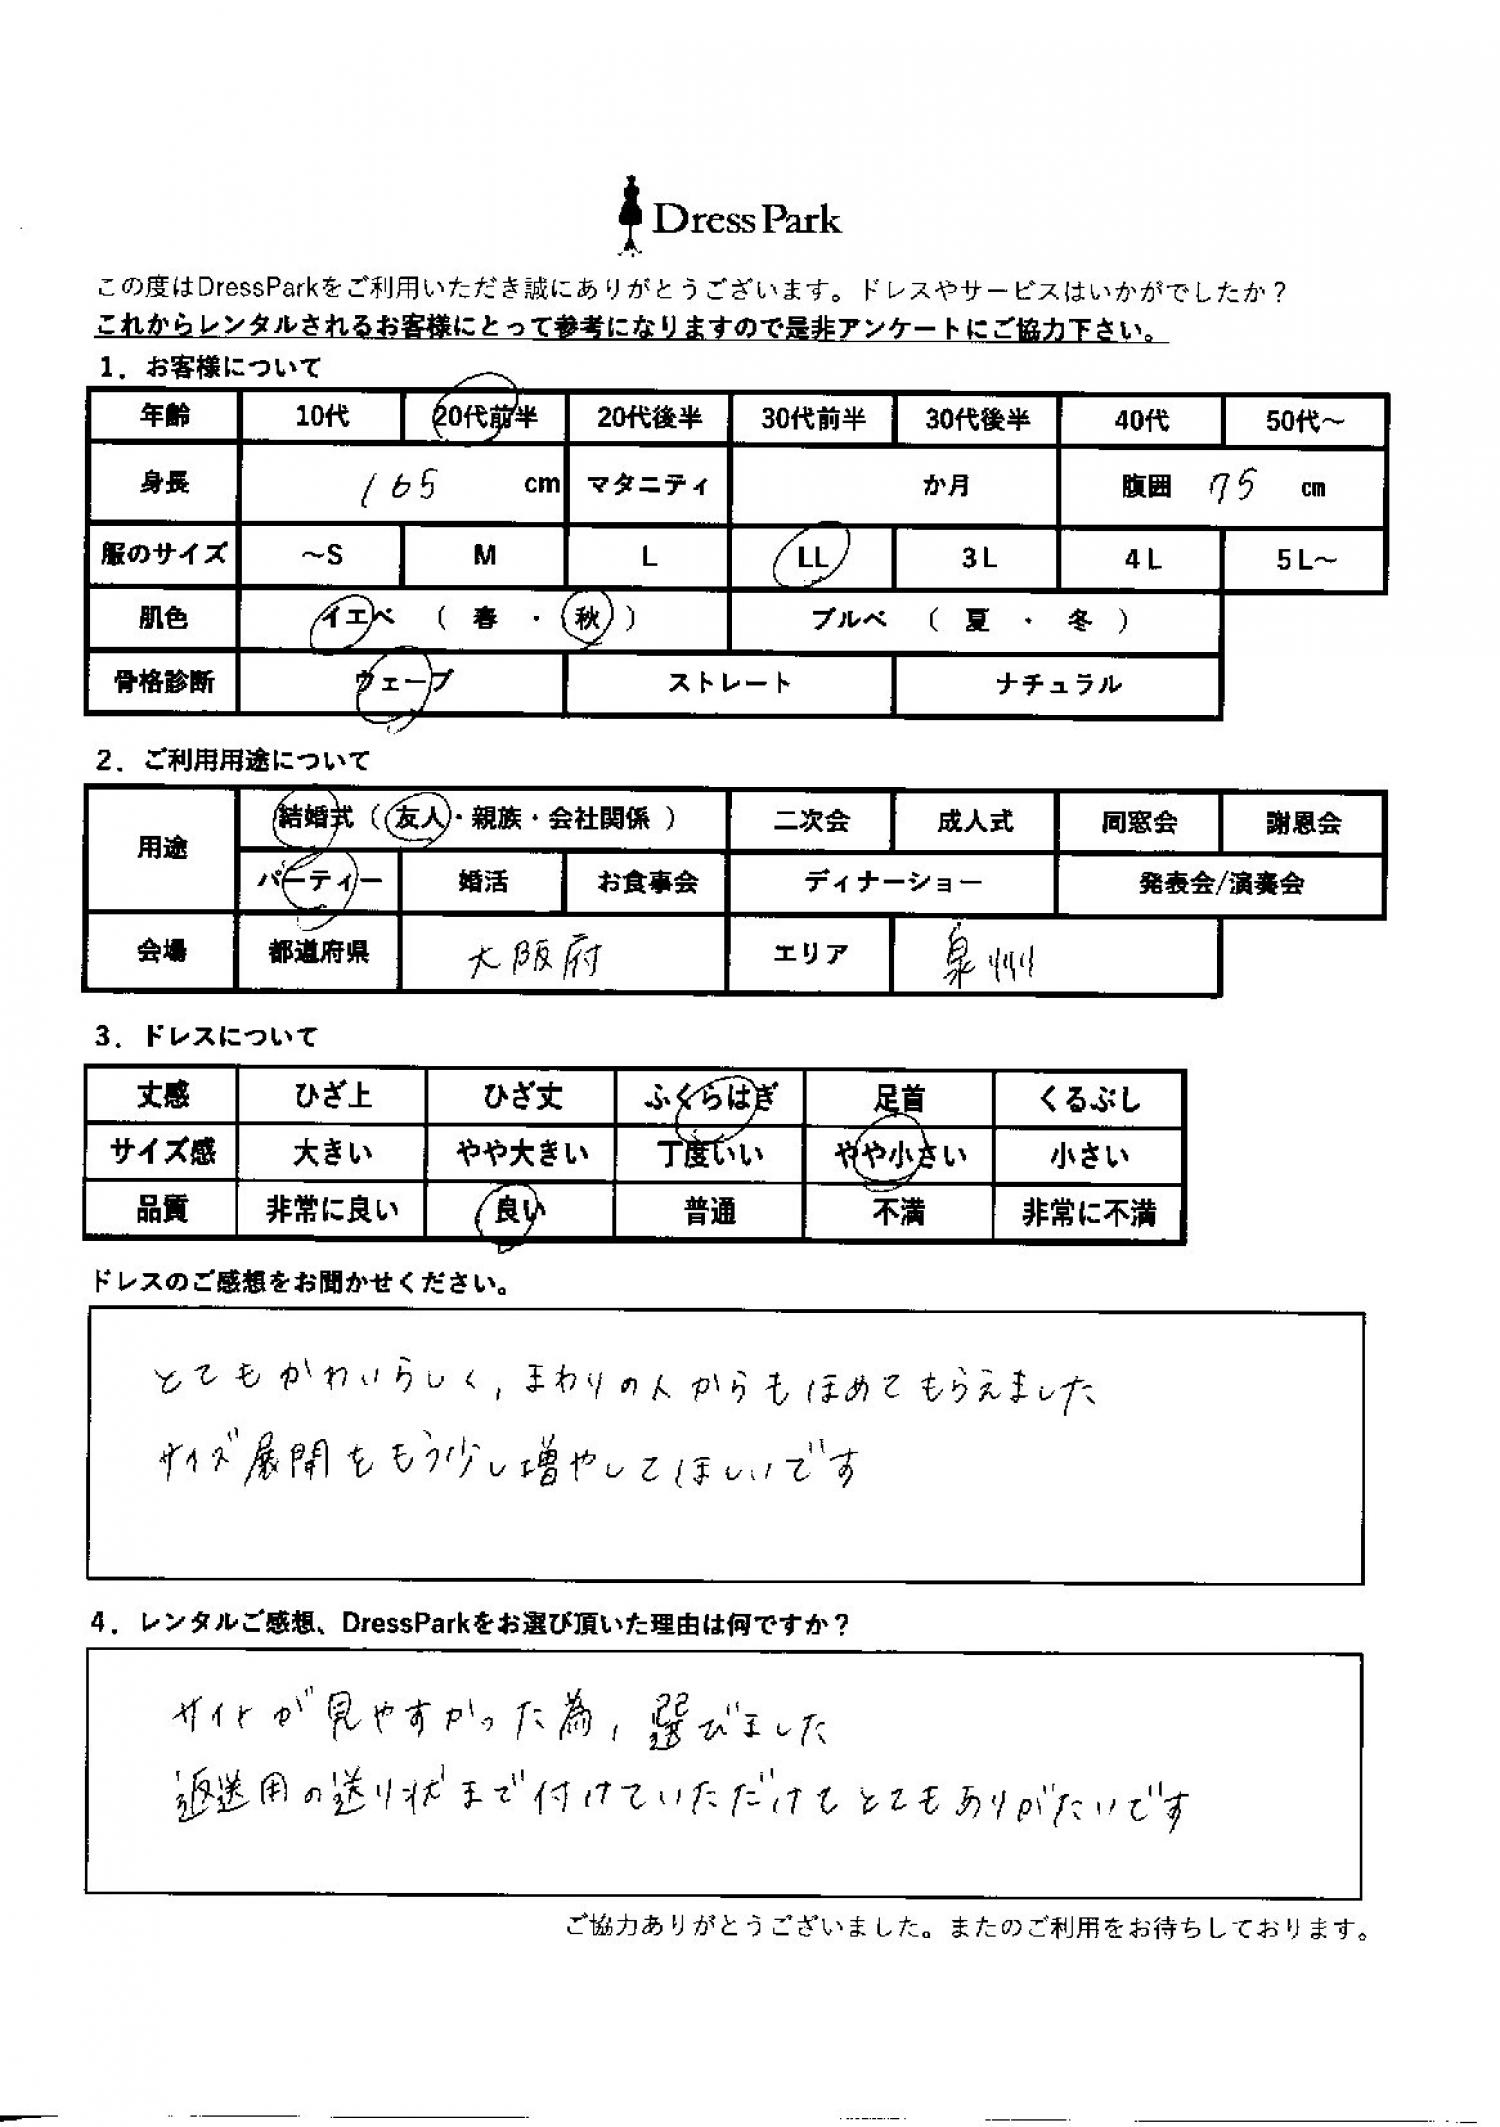 Dress Park
この度はDressParkをご利用いただき誠にありがとうございます。ドレスやサービスはいかがでしたか？
これからレンタルされるお客様にとって参考になりますので是非アンケートにご協力下さい。
1．お客様について
年齢 10代 20代前半 20代後半 30代前半 30代後半 40代 50代～
身長 165 cm マタニティ か月 腹囲 75 cm
服のサイズ ～S M L LL 3L 4L 5L～
肌色 イエベ （ 春 ・ 秋 ） ブルベ （ 夏 ・ 冬 ）
骨格診断 ウェーブ ストレート ナチュラル
2．ご利用用途について
用途 結婚式（ 友人・親族・会社関係 ） 二次会 成人式 同窓会 謝恩会
パーティー 婚活 お食事会 ディナーショー 発表会/演奏会
会場 都道府県 大阪府 エリア 泉州
3．ドレスについて
丈感 ひざ上 ひざ丈 ふくらはぎ 足首 くるぶし
サイズ感 大きい やや大きい 丁度いい やや小さい 小さい
品質 非常に良い 良い 普通 不満 非常に不満
ドレスのご感想をお聞かせください。
とてもかわいらしく，まわりの人からもほめてもらえました
サイズ展開をもう少し増やしてほしいです
4．レンタルご感想、DressParkをお選び頂いた理由は何ですか？
サイトが見やすかった為，選びました
返送用の送り状まで付けていただけてとてもありがたいです
ご協力ありがとうございました。またのご利用をお待ちしております。